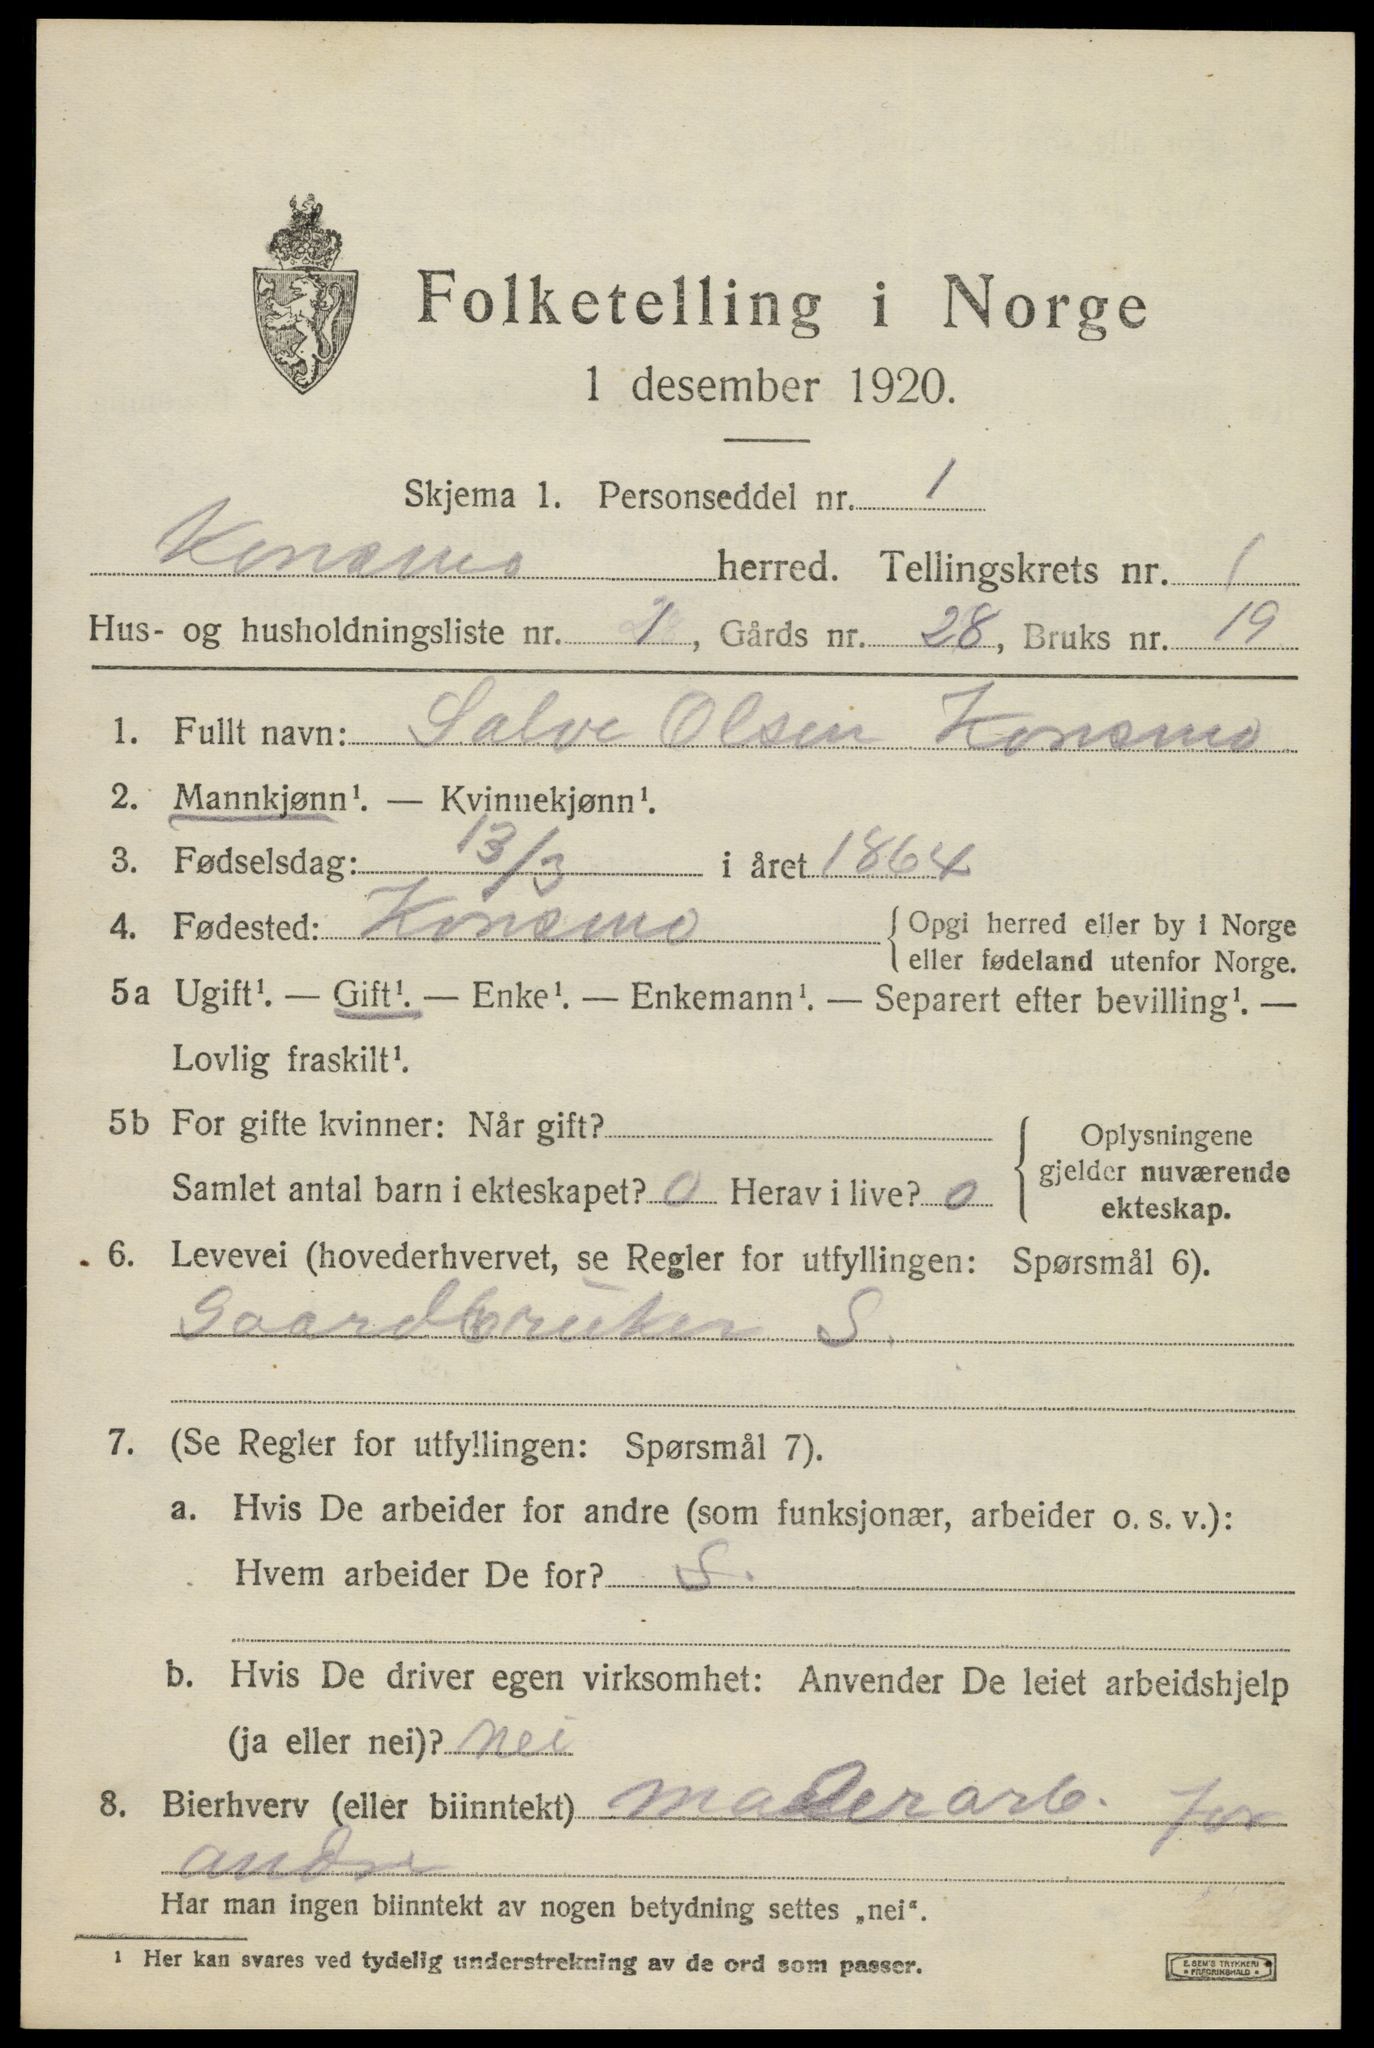 Folketelling i Norge
1 desember 1920.
Skjema 1. Personseddel nr. 1
Konsmo herred. Tellingskrets nr. 1
Hus- og husholdningsliste nr. 1, Gårds nr. 28, Bruks nr. 19
1. Fullt navn: Salve Olsen Konsmo
2. Mannkjønn¹. — Kvinnekjønn¹.
3. Fødselsdag: 13/3 i året 1864
4. Fødested: Konsmo
{ Opgi herred eller by i Norge
eller fødeland utenfor Norge.
5a Ugift¹. — Gift¹. — Enke¹. — Enkemann¹. — Separert efter bevilling¹. —
Lovlig fraskilt¹.
5b For gifte kvinner: Når gift?
Samlet antal barn i ekteskapet? 0 Herav i live? 0
{ Oplysningene
gjelder nuværende
ekteskap.
6. Levevei (hovederhvervet, se Regler for utfyllingen: Spørsmål 6).
Gaardbruker S.
7. (Se Regler for utfyllingen: Spørsmål 7).
a. Hvis De arbeider for andre (som funksjonær, arbeider o. s. v.):
Hvem arbeider De for? S.
b. Hvis De driver egen virksomhet: Anvender De leiet arbeidshjelp
(ja eller nei)? nei
8. Bierhverv (eller biinntekt) malerarb. for
andre
Har man ingen biinntekt av nogen betydning settes „nei“.
¹ Her kan svares ved tydelig understrekning av de ord som passer.
E. SEM'S TRYKKERI
FREDRIKSHALD